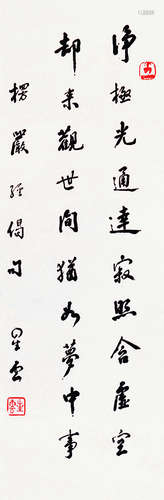 淨極光通達寂照含虛空
却来觀世間猶如夢中事
楞嚴經偈句 星雲